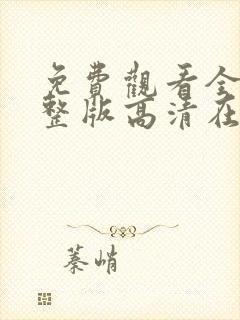 免費觀看全
整版高清在
蓁峭